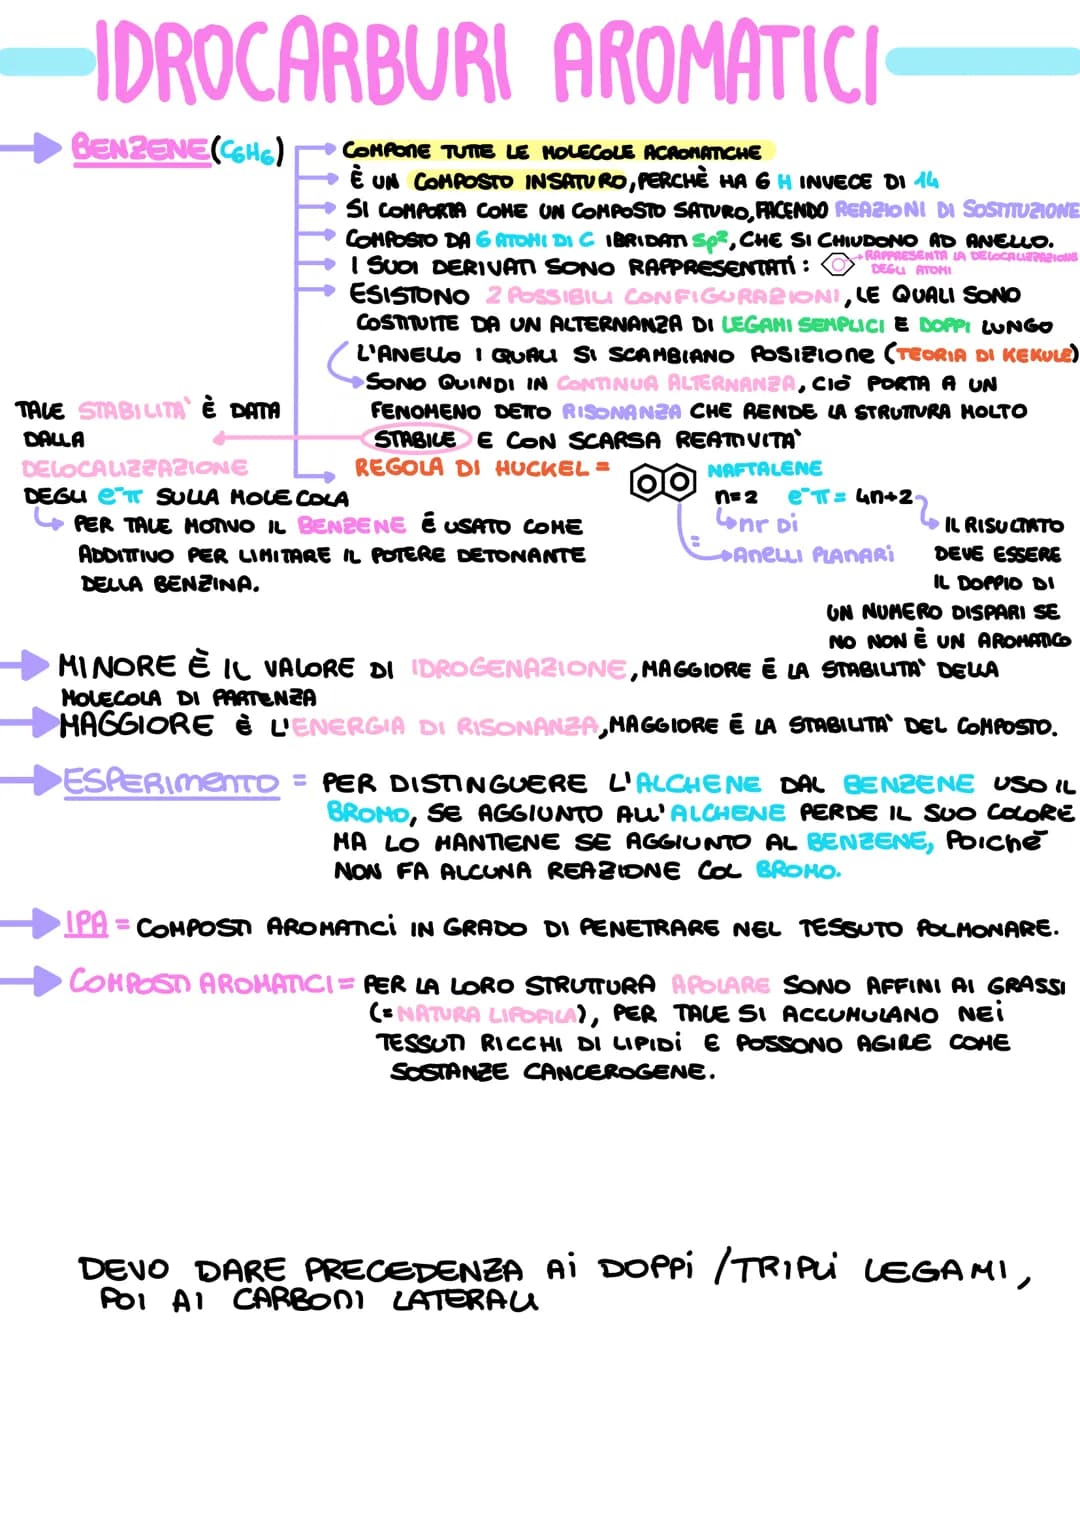 IDROCARBURI AROMATICI
BENZENE (C6H6)
COMPONE TUTTE LE MOLECOLE ACROMATICHE
È UN COMPOSTO INSATURO, PERCHÈ HA 6 H INVECE DI 14
SI COMPORTA COME UN COMPOSTO SATURO, FACENDO REAZIONI DI SOSTITUZIONE
COMPOSTO DA 6 ATOMI DI C IBRIDATI sp², CHE SI CHIUDONO AD ANELLO.
I SUOI DERIVATI SONO RAPPRESENTATI:
RAPPRESENTA LA DELOCALIZZAZIONE
DEGLI ATOMI
ESISTONO 2 POSSIBILI CONFIGURAZIONI, LE QUALI SONO
COSTITUITE DA UN ALTERNANZA DI LEGAMI SEMPLICI E DOPPI LUNGO
L'ANELLO I QUALI SI SCAMBIANO POSIZIONE (TEORIA DI KEKULÈ)
SONO QUINDI IN CONTINUA ALTERNANZA, CIÒ PORTA A UN
FENOMENO DETTO RISONANZA CHE RENDE LA STRUTTURA MOLTO
STABILE E CON SCARSA REATTIVITA'
TALE STABILITA' È DATA
DALLA
DELOCALIZZAZIONE
DEGLI e⁻π SULLA MOLECOLA
PER TALE MOTIVO IL BENZENE É USATO COME
ADDITTIVO PER LIMITARE IL POTERE DETONANTE
DELLA BENZINA.
REGOLA DI HUCKEL =
NAFTALENE
n=2 e⁻π = 4n+2
nr Di
= ANELLI PLANARI
IL RISULTATO
DEVE ESSERE
IL DOPPIO DI
UN NUMERO DISPARI SE
NO NON È UN AROMATICO
MINORE È IL VALORE DI IDROGENAZIONE, MAGGIORE É LA STABILITA' DELLA
MOLECOLA DI PARTENZA
MAGGIORE È L'ENERGIA DI RISONANZA, MAGGIORE É LA STABILITA' DEL COMPOSTO.
ESPERIMENTO = PER DISTINGUERE L'ALCHENE DAL BENZENE USO IL
BROMO, SE AGGIUNTO ALL'ALCHENE PERDE IL SUO COLORE
MA LO MANTIENE SE AGGIUNTO AL BENZENE, POICHÉ
NON FA ALCUNA REAZIONE COL BROMO.
IPA = COMPOSTI AROMATICI IN GRADO DI PENETRARE NEL TESSUTO POLMONARE.
COMPOSTI AROMATICI = PER LA LORO STRUTTURA APOLARE SONO AFFINI AI GRASSI
(= NATURA LIPOFILA), PER TALE SI ACCUMULANO NEI
TESSUTI RICCHI DI LIPIDI E POSSONO AGIRE COME
SOSTANZE CANCEROGENE.
DEVO DARE PRECEDENZA AI DOPPI / TRIPLI LEGAMI,
POI AI CARBONI LATERALI